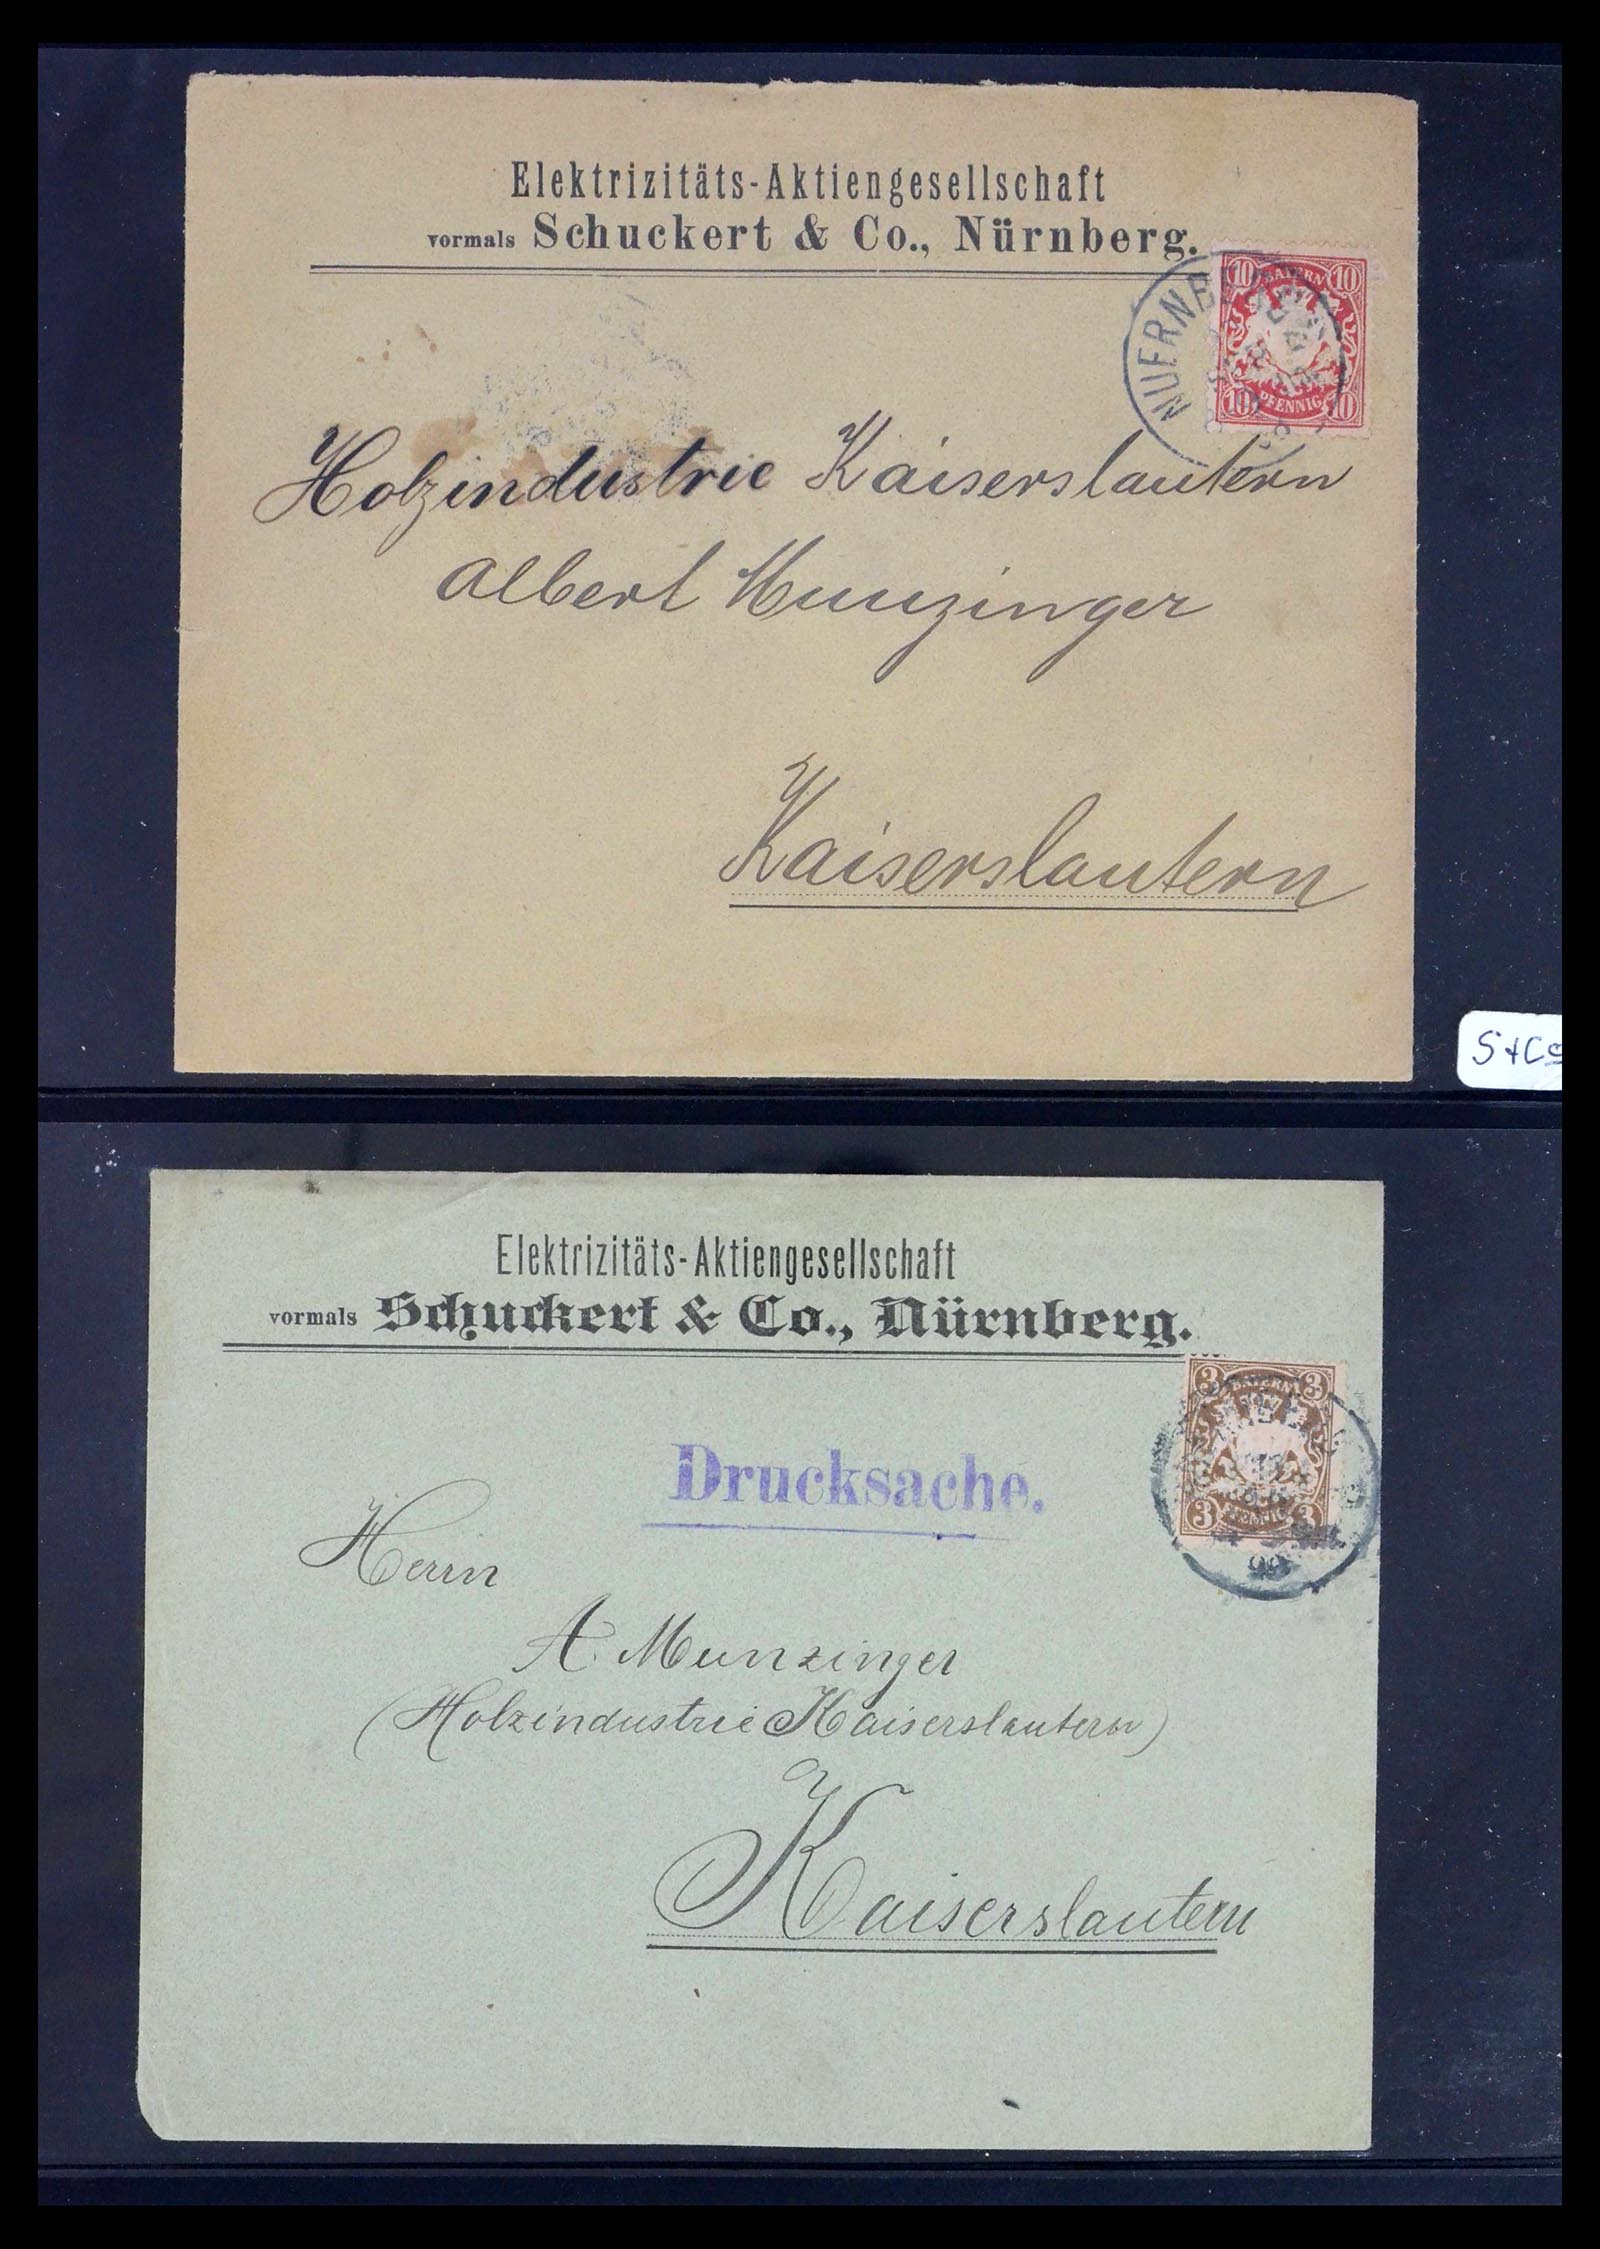 Elektrizitäts-Aktiengesellschaft
vormals Schuckert & Co., Nürnberg.
10 BAYERN 10
10 PFENNIG 10
Holzindustrie Kaiserslautern
Albert Munzinger
Kaiserslautern
S+Co
Elektrizitäts-Aktiengesellschaft
vormals Schuckert & Co., Nürnberg.
3 BAYERN 3
3 PFENNIG 3
99
Drucksache.
Herrn
A. Munzinger
(Holzindustrie Kaiserslautern)
Kaiserslautern